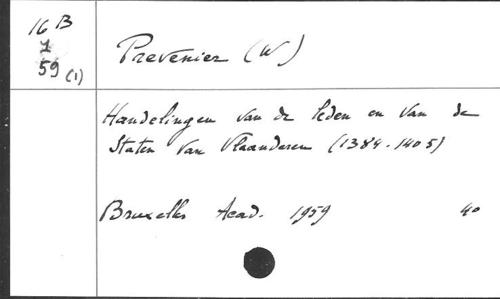 16 B
1
59 (1)
Prevenier (W)
Handelingen van de leden en van de
Staten van Vlaanderen (1384-1405)
Bruxelles Acad. 1959 4o